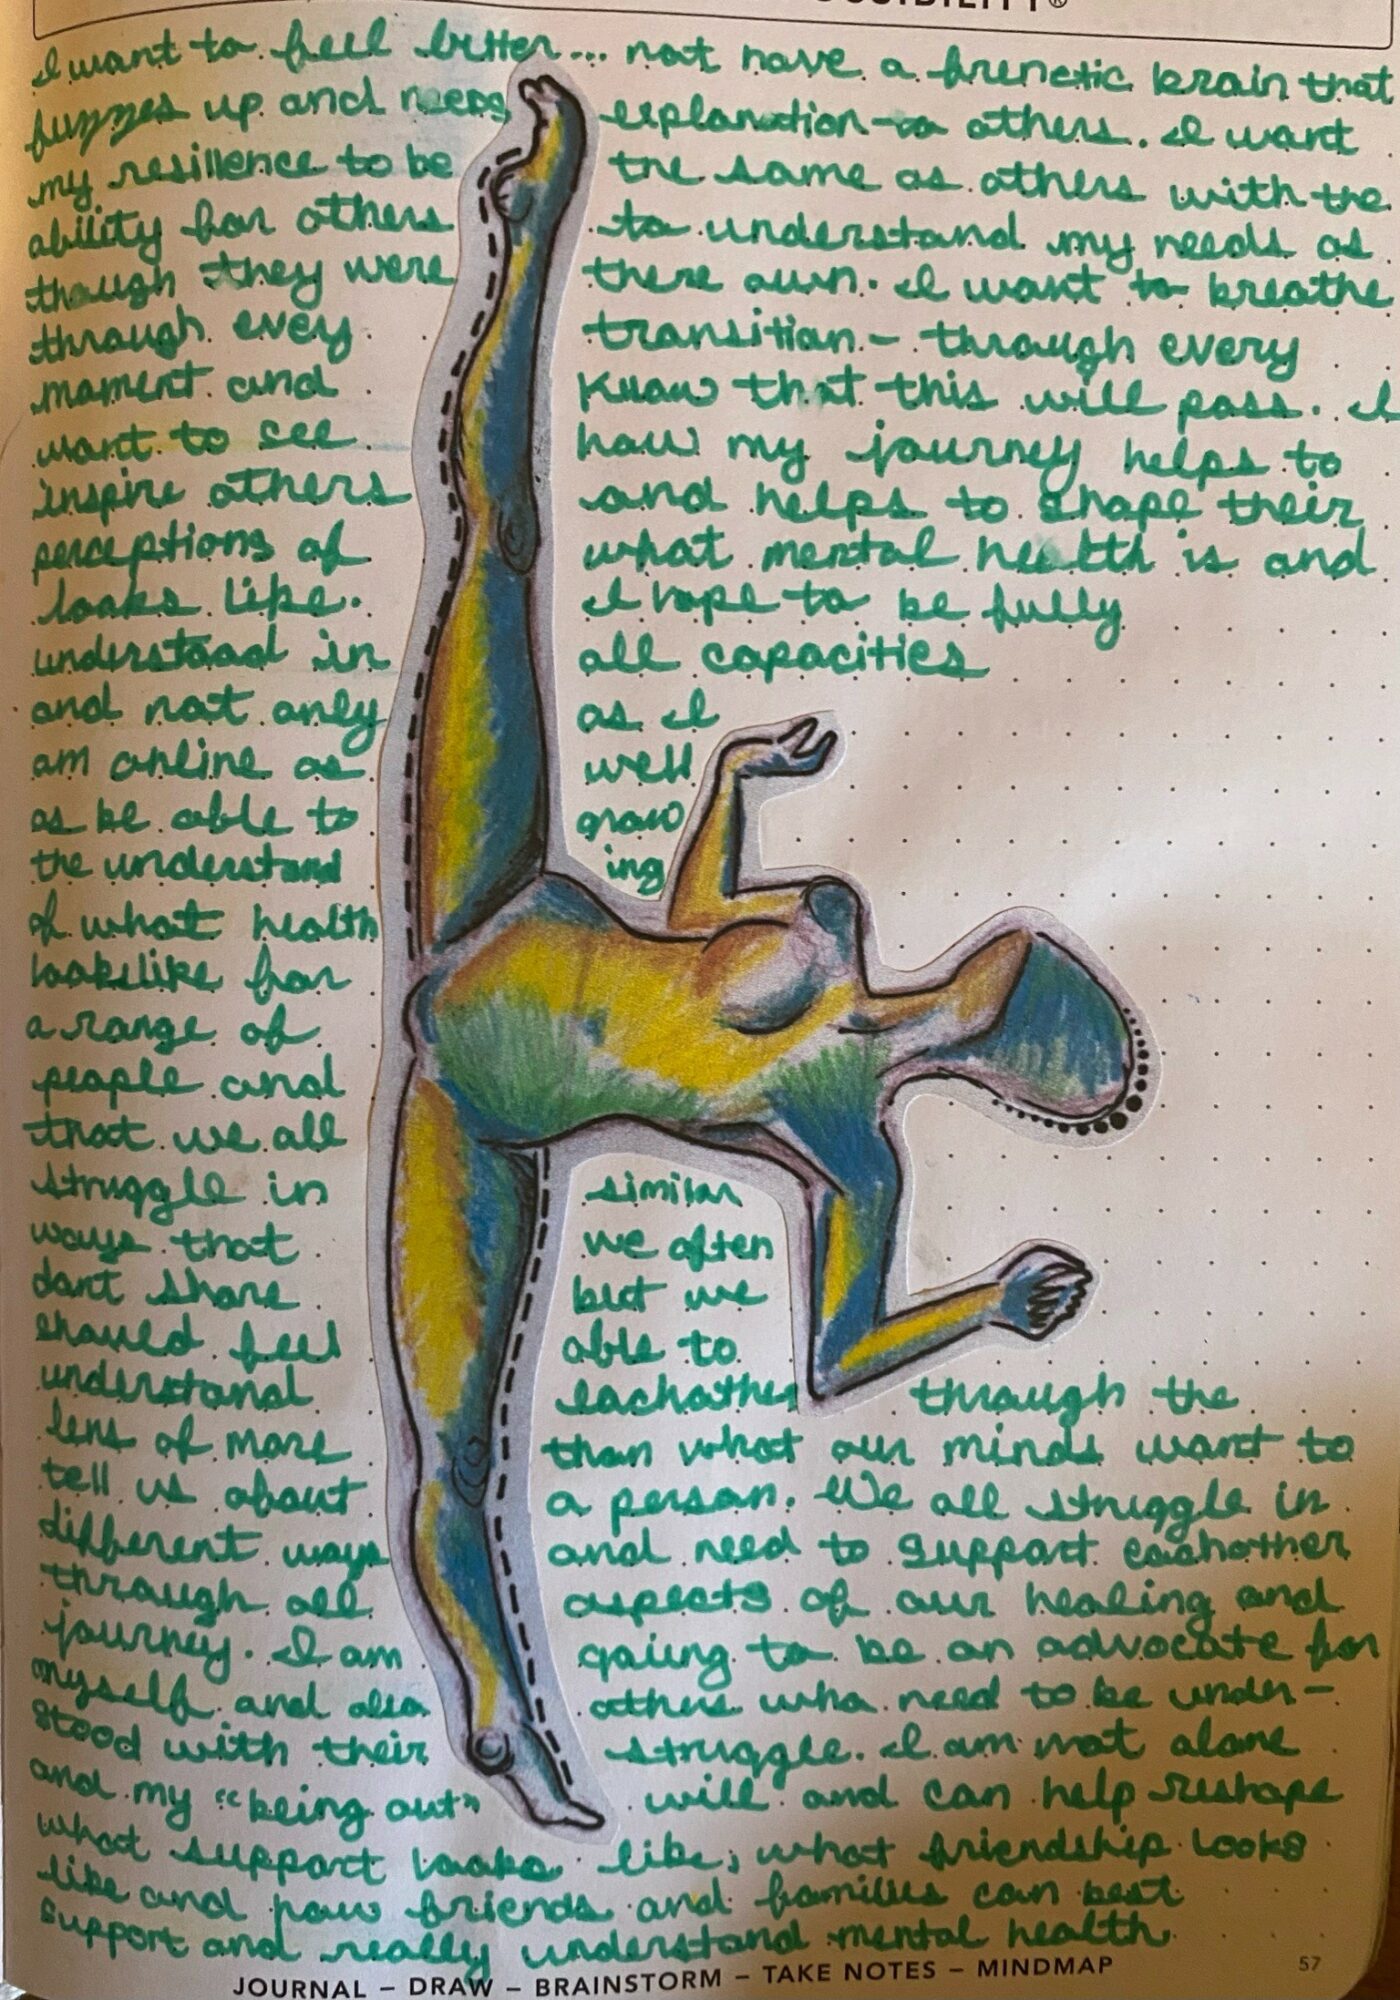 I want to feel better... not have a frenetic brain that
fuzzes up and needs explanation to others. I want
my resilience to be the same as others with the
ability for others to understand my needs as
though they were there own. I want to breathe
through every transition - through every
moment and know that this will pass. I
want to see how my journey helps to
inspire others and helps to shape their
perceptions of what mental health is and
looks like. I hope to be fully
understood in all capacities
and not only as I
am online as well
as be able to grow
the understand ing
of what health
looks like for
a range of
people and
that we all
struggle in similar
ways that we often
dont share but we
should feel able to
understand eachother through the
lens of more than what our minds want to
tell us about a person. We all struggle in
different ways and need to support eachother
through all aspects of our healing and
journey. I am going to be an advocate for
myself and also others who need to be under-
stood with their struggle. I am not alone
and my "being out" will and can help reshape
what support looks like, what friendship looks
like and how friends and families can best
support and really understand mental health
JOURNAL – DRAW – BRAINSTORM – TAKE NOTES – MINDMAP 57